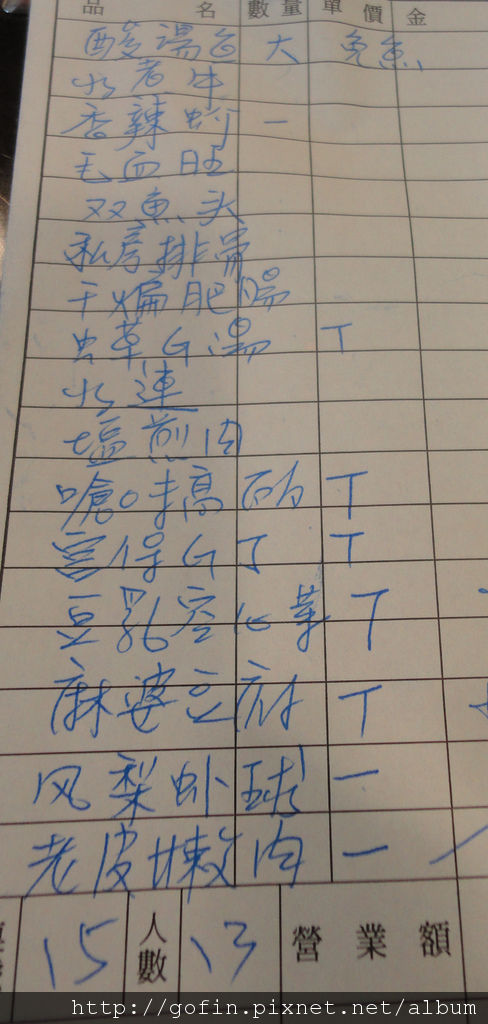 品 名 數量 單價 金
酸湯 大 免魚
水煮牛
香辣蚵 一
毛血旺
双魚头
私房排骨
干煸肥腸
虫草G湯 T
水連
塩煎肉
嗆 T
宮保G丁 T
豆乳空心菜 T
麻婆豆府 T
风梨虾球 一
老皮嫩肉 一
15 人數 13 營業額
http://gofin.pixnet.net/album